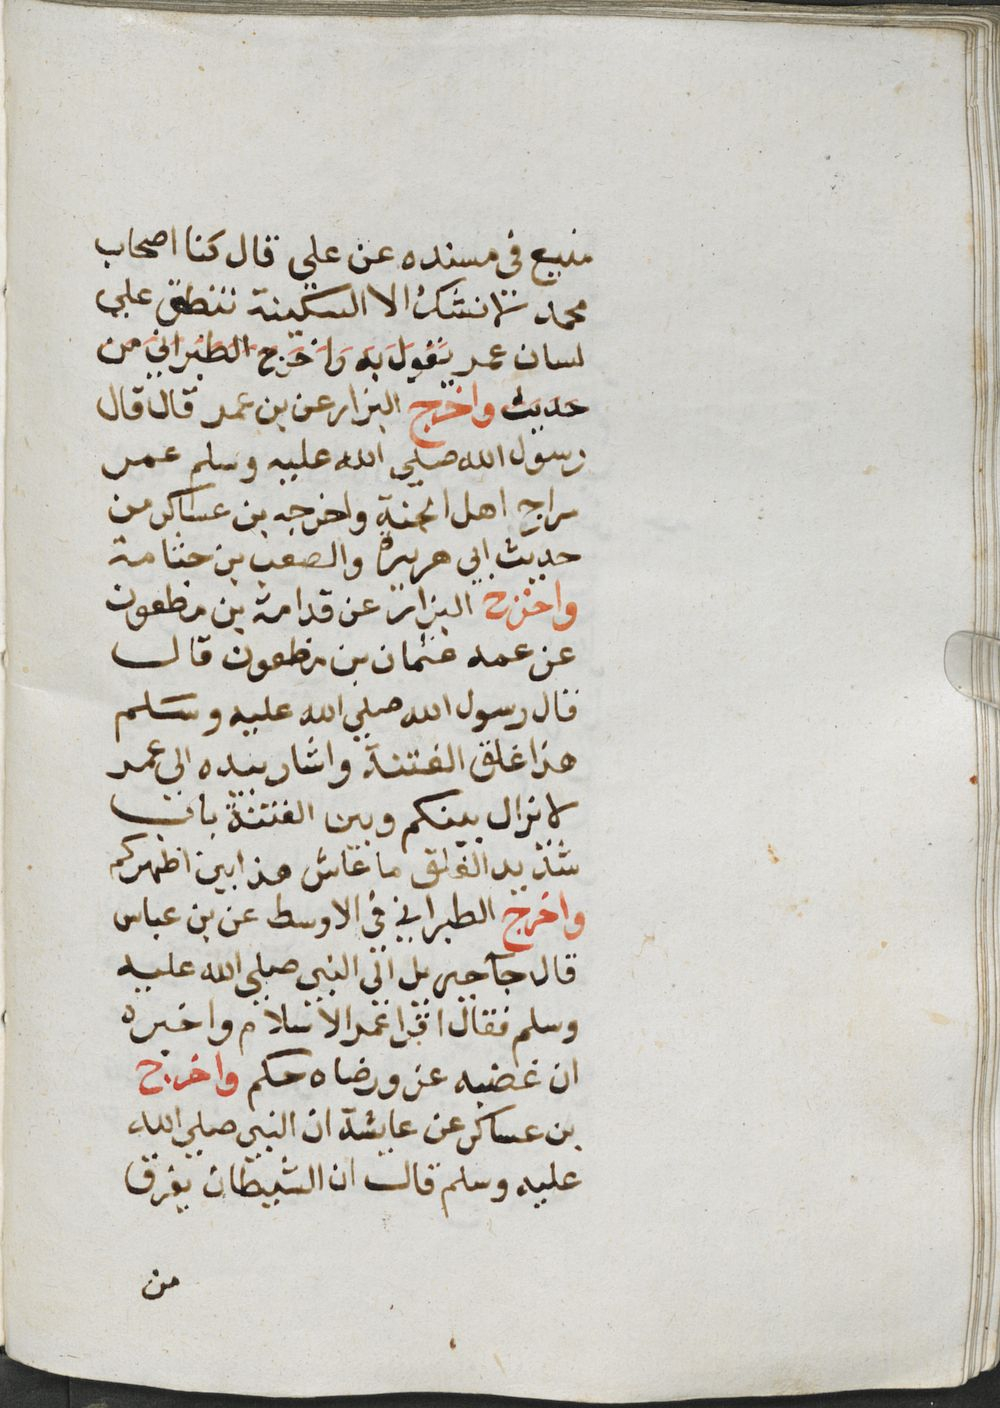 منيع فى مسنده عن علي قال كنا اصحاب
محمد لا نشك الا السكينة تنطق علي
لسان عمر يقول به واخرج الطبراني من
حديث واخرج البزار عن بن عمر قال قال
رسول الله صلي الله عليه وسلم عمر
سراج اهل الجنة واخرجه بن عساكر من
حديث ابي هريرة والصعب بن جثامة
واخرج البزار عن قدامة بن مظعون
عن عمه عثمان بن مظعون قال
قال رسول الله صلي الله عليه وسلم
هذا غلق الفتنة واشار بيده الى عمر
لا تزال بينكم وبين الفتنة باب
شديد الغلق ما عاش هذا بين اظهركم
واخرج الطبراني فى الاوسط عن بن عباس
قال جآ جبريل الى النبي صلي الله عليه
وسلم فقال اقرا عمر الاسلام واخبره
ان غضبه عز ورضاه حكم واخرج
بن عساكر عن عايشة ان النبي صلي الله
عليه وسلم قال ان الشيطان يفرق
من